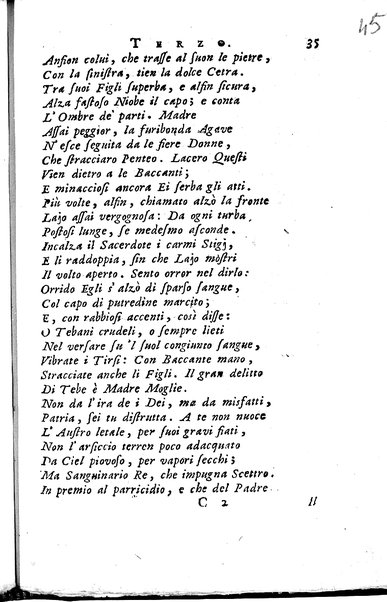 45
TERZO. 35
Anfion colui, che traſſe al ſuon le pietre,
Con la ſiniſtra, tien la dolce Cetra.
Tra ſuoi Figli ſuperba, e alfin ſicura,
Alza faſtoſo Niobe il capo; e conta
L'Ombre de' parti. Madre
Aſſai peggior, la furibonda Agave
N'eſce ſeguita da le fiere Donne,
Che ſtracciaro Penteo. Lacero Queſti
Vien dietro a le Baccanti;
E minaccioſi ancora Ei ſerba gli atti.
Più volte, alfin, chiamato alzò la fronte
Lajo aſſai vergognoſa: Da ogni turba
Poſtoſi lunge, ſe medeſmo aſconde.
Incalza il Sacerdote i carmi Stigj,
E li raddoppia, fin che Lajo móſtri
Il volto aperto. Sento orror nel dirlo:
Orrido Egli s'alzò di ſparſo ſangue,
Col capo di putredine marcito;
E, con rabbioſi accenti, così diſſe:
O Tebani crudeli, o ſempre lieti
Nel verſare ſu 'l ſuol congiunto ſangue,
Vibrate i Tirſi: Con Baccante mano,
Stracciate anche li Figli. Il gran delitto
Di Tebe è Madre Moglie.
Non da l'ira de i Dei, ma da misfatti,
Patria, ſei tu diſtrutta. A te non nuoce
L'Auſtro letale, per ſuoi gravi fiati,
Non l'arſiccio terren poco adacquato
Da Ciel piovoſo, per vapori ſecchi;
Ma Sanguinario Re, che impugna Scettro.
In premio al parricidio, e che del Padre
C 2 Il